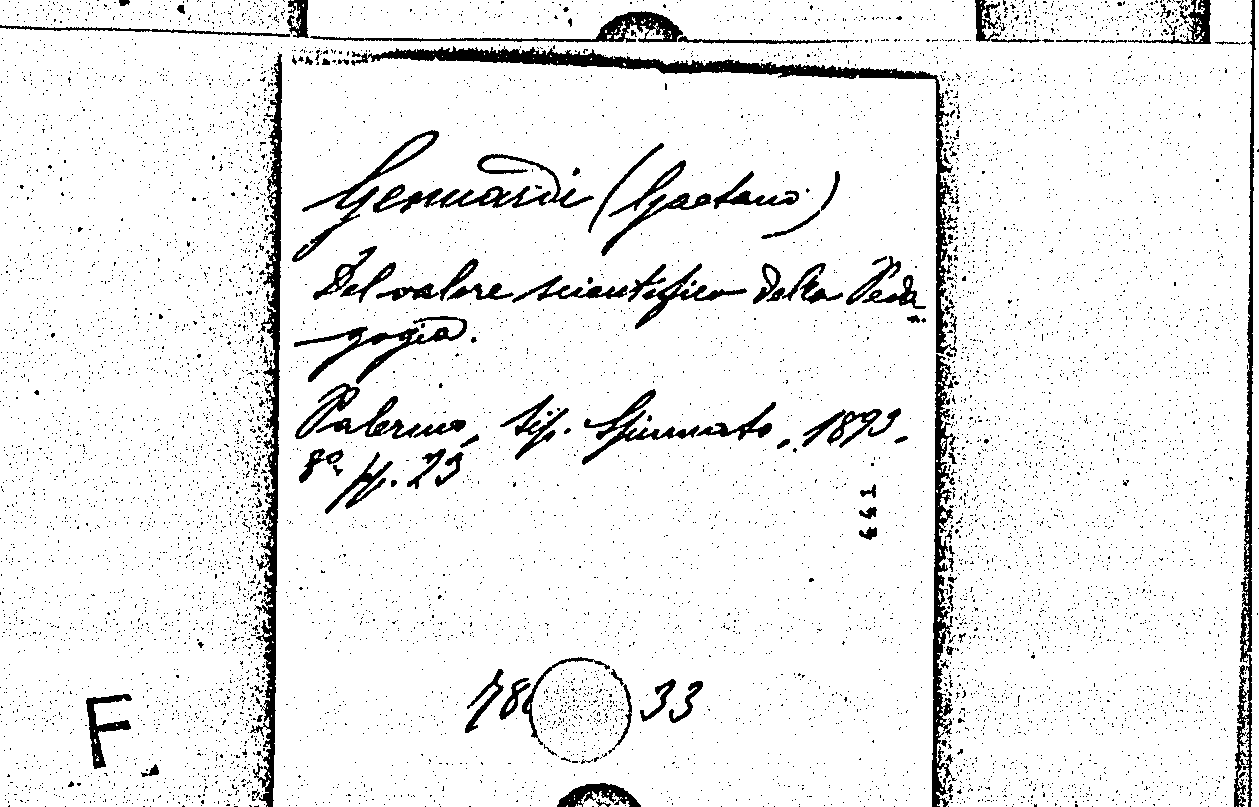 Gennardi (Gaetano)
Del valore scientifico della Peda
gogia.
Palermo, tip. Spinnato, 1893.
8º pp. 23
441
33
F